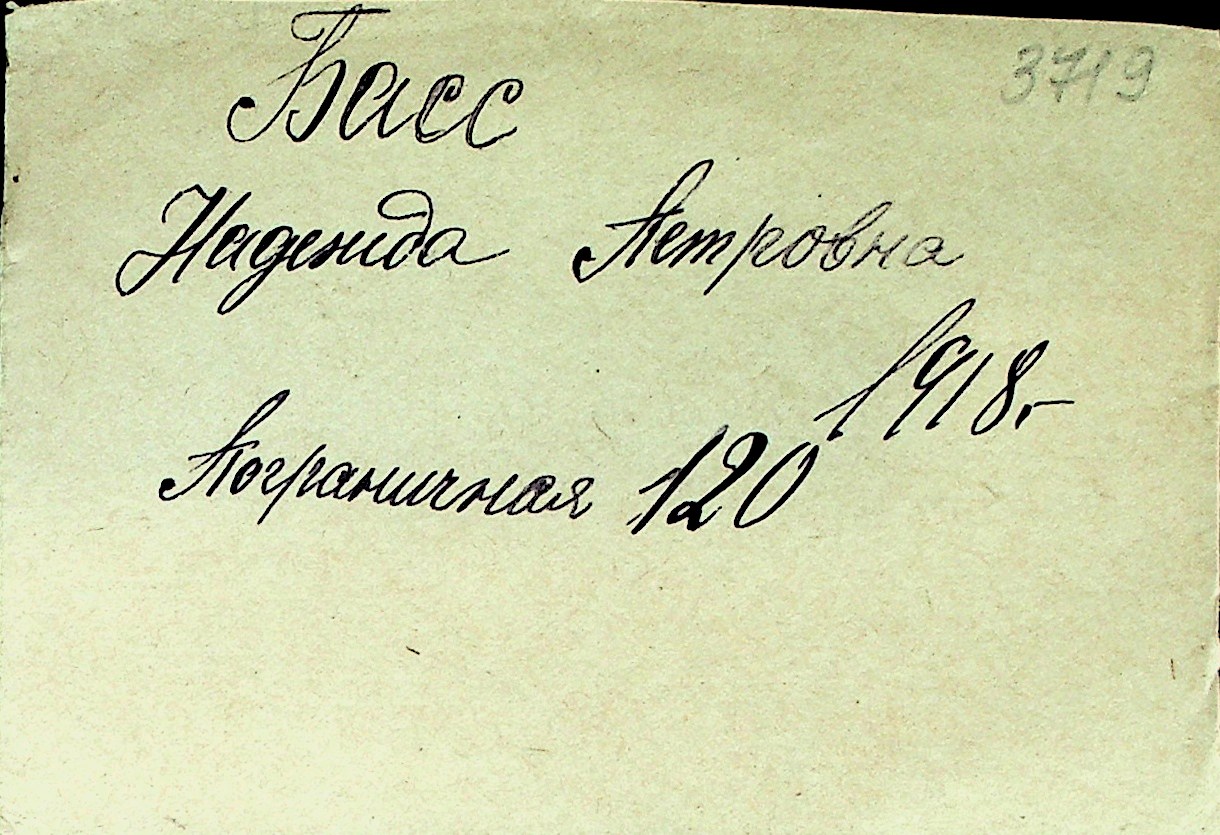 3719
Басс
Надежда Петровна
1918.-
Пограничная 120